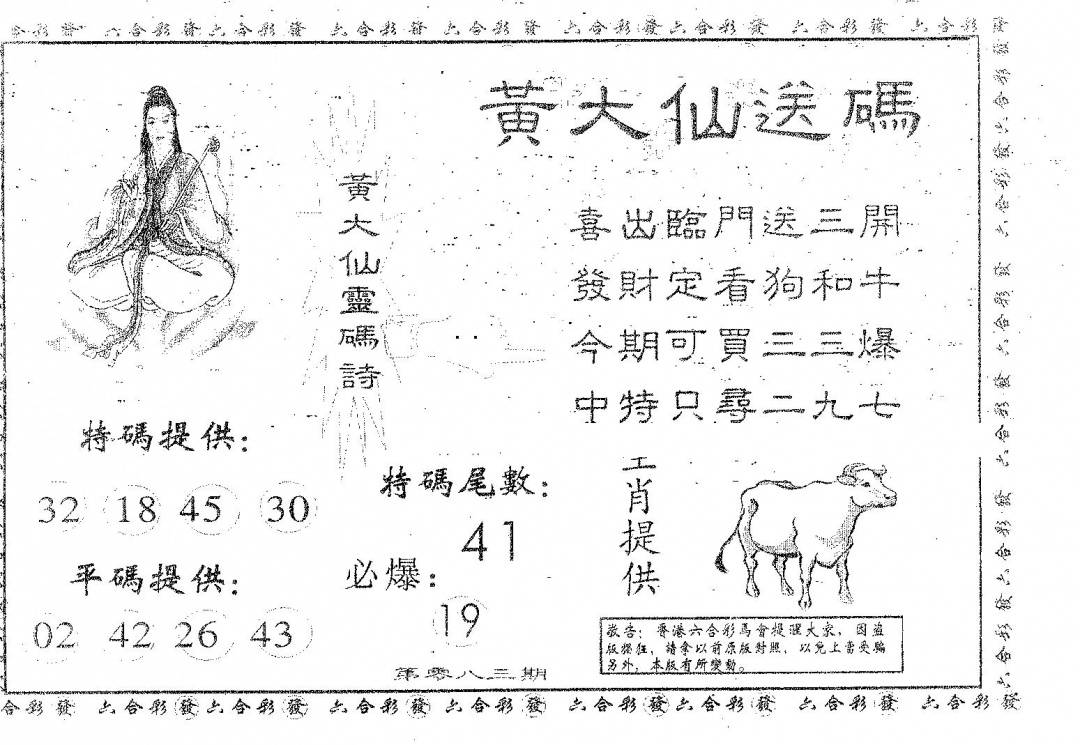 六合彩發六合彩發 六合彩發六合彩發 六合彩發六合彩發 六合彩發 六合彩發
黃大仙送碼
黃大仙靈碼詩
喜出臨門送三開
發財定看狗和牛
今期可買二三爆
中特只尋二九七
特碼提供：
32 18 45 30
平碼提供：
02 42 26 43
特碼尾數：
41
必爆：
19
第零八三期
肖提供
敬告：香港六合彩馬會提醒大家，因盜
版猖狂，請拿以前原版對照，以免上當受騙
另外，本版有所變動。
六合彩發六合彩發六合彩發六合彩發六合彩發六合彩
合彩發 六合彩發六合彩發 六合彩發 六合彩發 六合彩發六合彩發 六合彩發 六合彩發